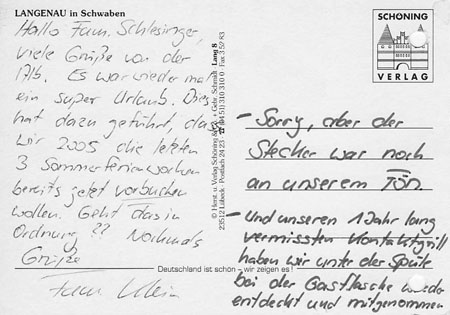 LANGENAU in Schwaben
Hallo Fam. Schlesinger,
viele Grüße von der
Alb. Es war wieder mal
ein super Urlaub. Dies
hat dazu geführt, daß
wir 2005 die letzten
3 Sommerferienwochen
bereits jetzt vorbuchen
wollen. Geht das in
Ordnung ?? Nochmals
Grüße
Fam. Klein
Lang 8
© Horst u. Verlag Schöning & Co. + Gebr. Schmidt
23512 Lübeck · Postfach 24 23 · (04 51) 310 310 0 · Fax 3 59 83
Deutschland ist schön – wir zeigen es!
SCHÖNING
VERLAG
- Sorry, aber der
Stecker war noch
an unserem Fön.
- Und unseren 1 Jahr lang
vermissten Kontaktgrill
haben wir unter der Spüle
bei der Gasflasche wieder
entdeckt und mitgenommen